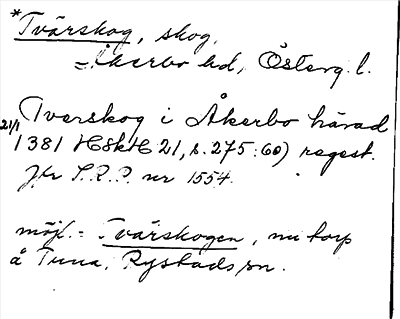 *Tvärskog, skog,
= Åkerbo hd, Österg. l.
Tverskog i Åkerbo härad
21/1 1381 HSkH 21, s. 275:60) regest.
Jfr S.R.P. nr 1554.
möjl. = Tvärskogen, nu torp
å Tuna, Rystads sn.